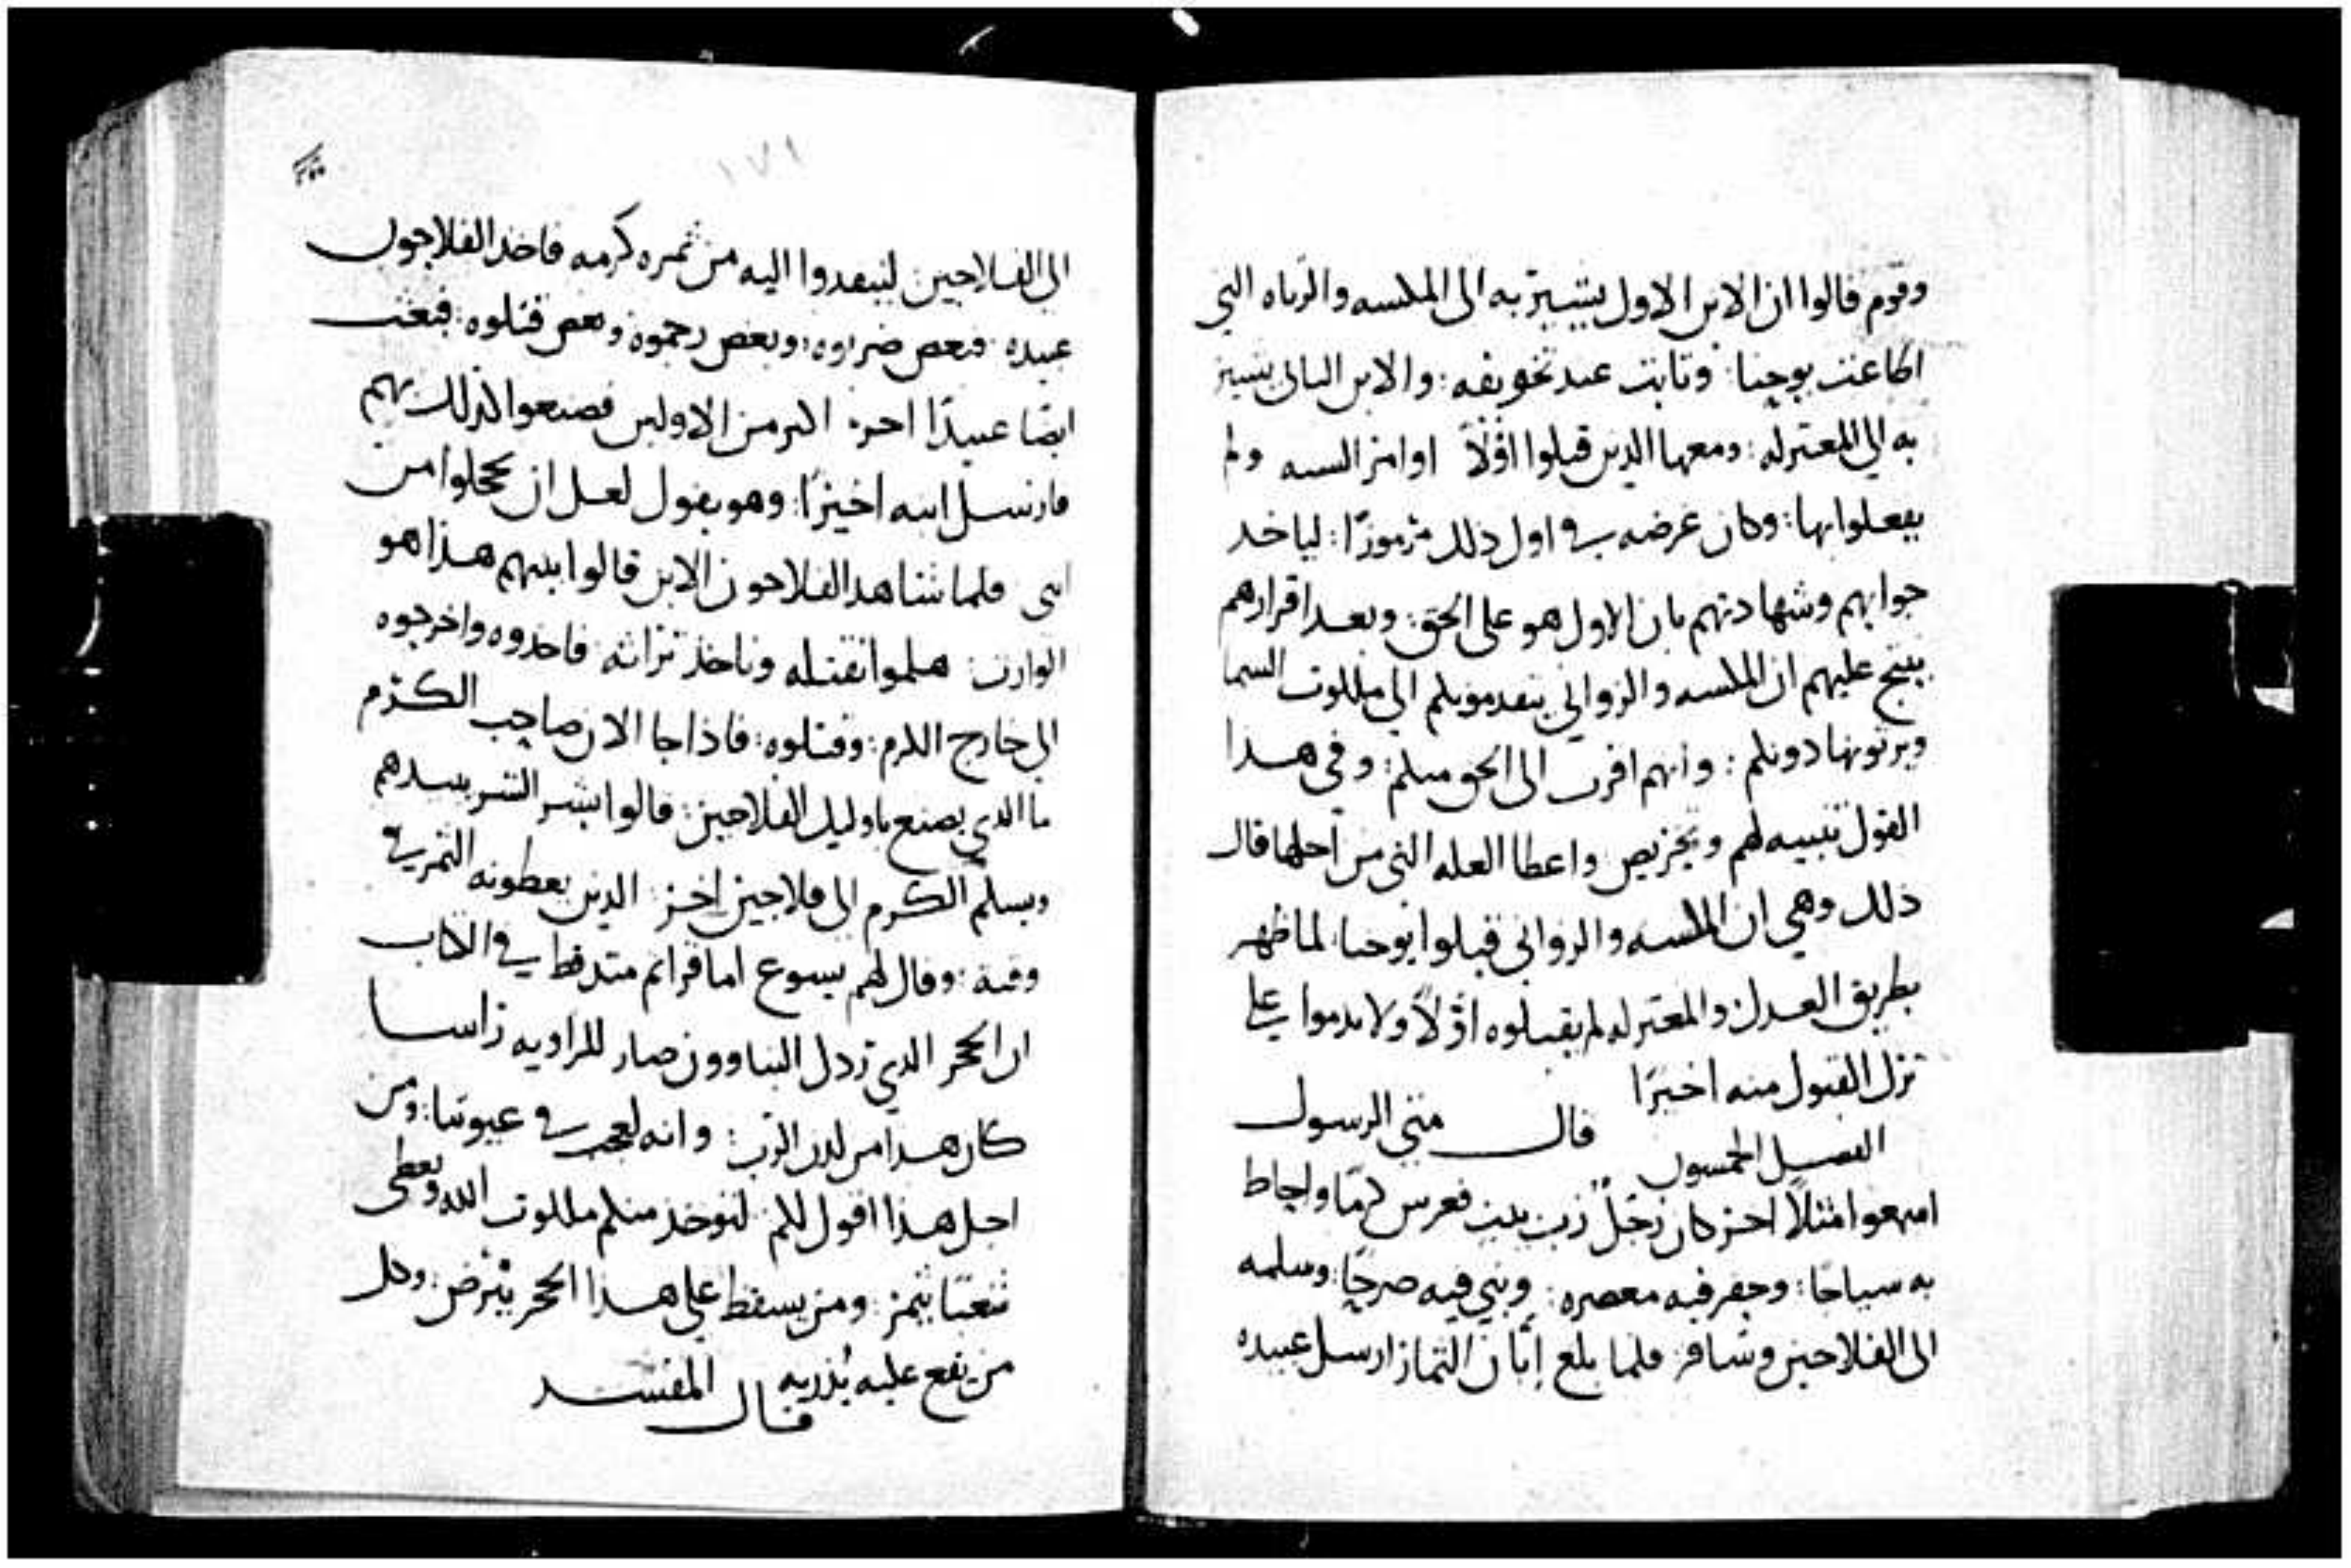 وقوم قالوا ان الابن الاول يشير به الى المكسه والزناه التي
اطاعت يوحنا : وتابت عند تخويفه : والابن الثاني يشير
به الي المعتزله : ومعها الذين قبلوا اوّلاً اوامر السنه ولم
يفعلوا بها : وكان غرضه في اول ذلك مرموزًا : لياخد
جوابهم وشهادتهم بان الاول هو على الحق : وبعد اقرارهم
ينتج عليهم ان المكسه والزواني يتقدمونكم الي ملكوت السما
ويرثونها دونكم : وانهم اقرب الى الحق منكم : وفي هدا
القول تنبيه لهم وتحريص واعطا العله التي من اجلها قال
ذلك وهي ان المكسه والزواني قبلوا يوحنا لما ظهر
بطريق العدل والمعتزله لم يقبلوه اوّلاً ولا ندموا علي
ترك القبول منه اخيرًا
الفصل الخمسون قال متي الرسول
اسمعوا مثلاً اخر كان رجلٌ رب بيت فغرس كرمًا واحاط
به سياجًا : وحفر فيه معصره : وبني فيه صرحًا : وسلمه
الى الفلاحين وسافر فلما بلغ إبّان الثمار ارسل عبيده
١٧١
الى الفلاحين لينفدوا اليه من ثمره كرمه فاخد الفلاحون
عبيده فبعض ضربوه : وبعض رجموه وبعض قتلوه : فبعث
ايضا عبيدًا اخر اكثر من الاولين فصنعوا كذلك بهم
فارسل ابنه اخيرًا : وهو يقول لعل ان يخجلوا من
ابني فلما شاهد الفلاحون الابن قالوا بينهم هذا هو
الوارث : هلموا نقتله وناخذ تراثه فاخدوه واخرجوه
الى خارج الكرم : وقتلوه : فاذا جا الان صاحب الكرم
ما الدي يصنع باوليك الفلاحين : قالوا بشر الشر يبيدهم
ويسلم الكرم الى فلاحين اخر الدين يعطونه الثمر في
وقته : وقال لهم يسوع اما قراتم متد قط في الكتاب
ان الحجر الدي ردل البناوون صار للزاويه راسا
كان هدا من لدن الرب : وانه لعجب في عيوننا : ومن
اجل هذا اقول لكم لتوخذ منكم ملكوت الله ويعطى
شعبًا يثمر : ومن يسقط علي هدا الحجر يترض : وكل
من يقع عليه يذريه
قال المفسد